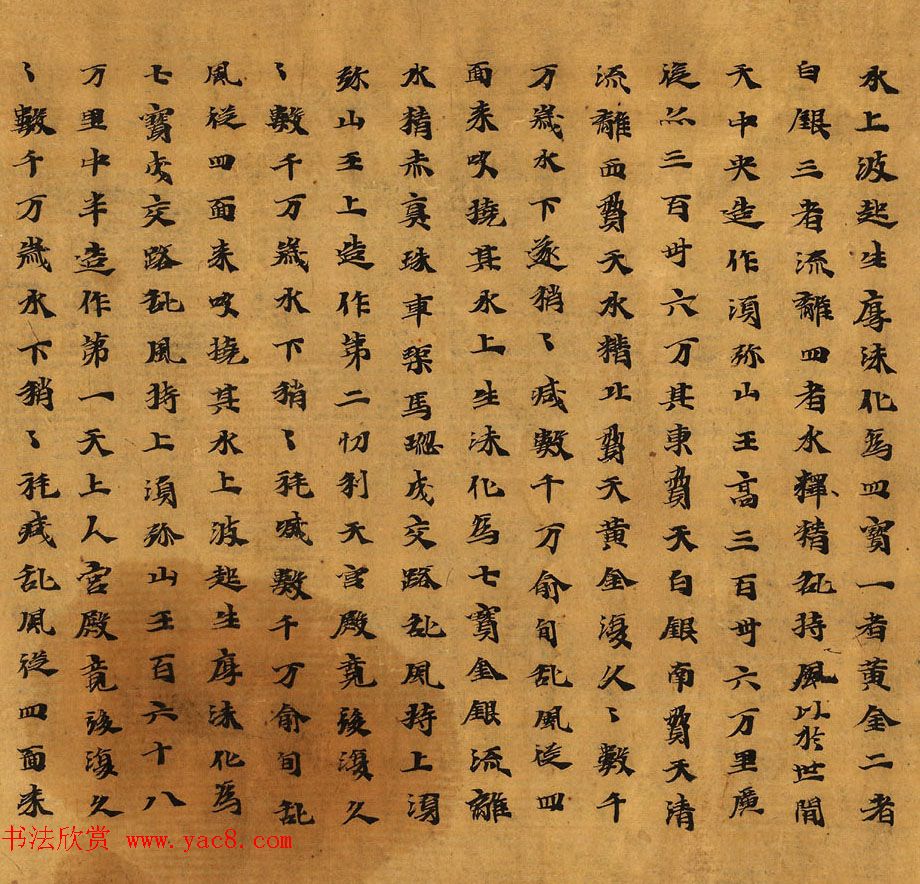 水上波起生厚沫化為四寶一者黃金二者
白銀三者流離四者水精乱持風以於世間
天中央造作湏弥山王高三百卅六万里廣
從亦三百卅六万其東䝿天白銀南䝿天清
流離西䝿天水精北䝿天黃金復久〻數千
万歲水下遂稍〻減數千万俞旬乱風從四
面来吹撓其水上生沫化為七寶金銀流離
水精赤真珠車𤦲馬瑙成交路乱風持上湏
弥山王上造作第二忉利天宮殿竟後復久
〻數千万歲水下稍〻耗減數千万俞旬乱
風從四面来吹撓其水上波起生厚沫化為
七寶成交路乱風持上湏弥山王百六十八
万里中半造作第一天上人宮殿竟後復久
〻數千万歲水下稍〻耗減乱風從四面来
书法欣赏 www.yac8.com